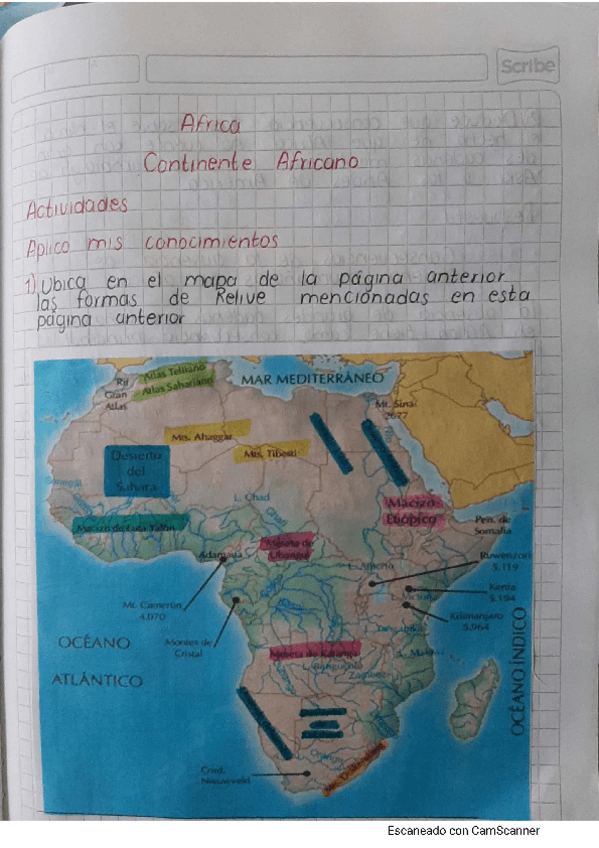 Scribe
Africa
Continente Africano
Actividades
Aplico mis conocimientos
1) Ubica en el mapa de la página anterior
las formas de Relive mencionadas en esta
página anterior
Atlas Telliano
Rif
Atlas Sahariano
Gran
Atlas
MAR MEDITERRÁNEO
Mt. Sinaí
2677
Mts. Ahaggar
Mts. Tibesti
Desierto
del
Sahara
Senegal
L. Chad
Chari
Macizo
Etiópico
Macizo de Futa Yalón
Pen. de
Somalia
Meseta de
Ubangui
Adamaua
L. Alberto
Ruwenzori
5.119
Kenia
5.194
L. Victoria
Mt. Camerún
4.070
Kilimanjaro
5.964
OCÉANO
ATLÁNTICO
Montes de
Cristal
Meseta de Katanga
L. Bangueolo
OCÉANO ÍNDICO
Cord.
Nieuweveld
Escaneado con CamScanner